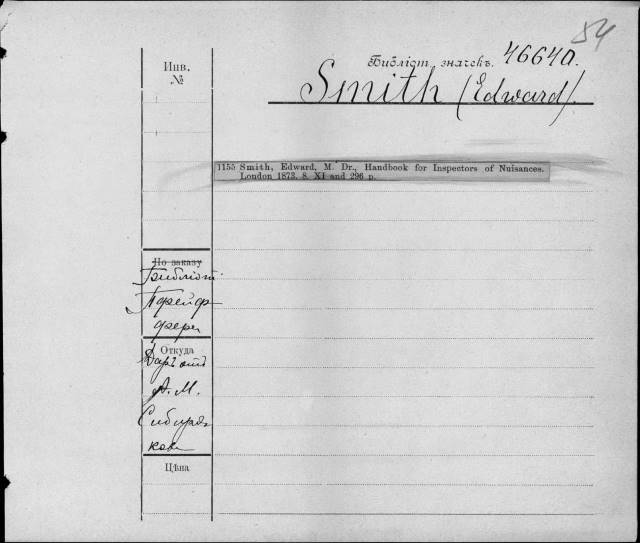 84
Библіот. значекъ. 46640.
Инв.
№
Smith (Edward).
1155 Smith, Edward, M. Dr., Handbook for Inspectors of Nuisances.
London 1873. 8. XI and 296 p.
По заказу
Библіот.
Пфейф-
фера
Откуда
Даръ отъ
А. М.
Сибиряко
Цѣна